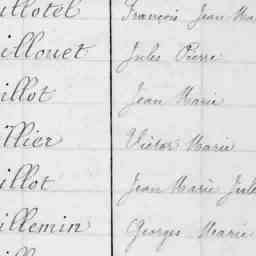 illotel François Jean Ma
illouet Jules Pierre
illot Jean Marie
illier Victor Marie
illot Jean Marie Jule
illemin Georges Marie